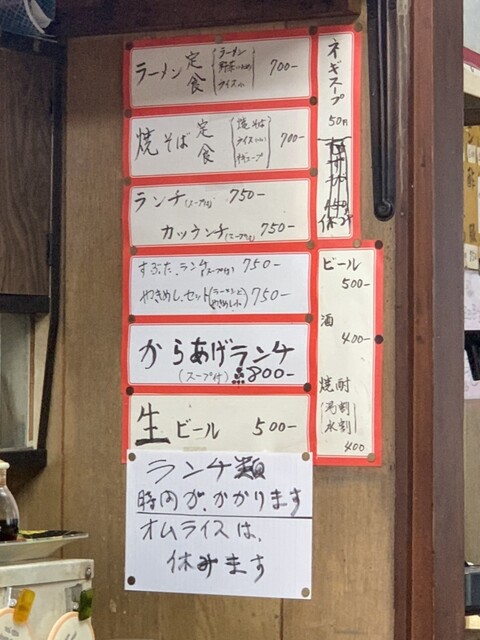 ラーメン定食 (ラーメン 野菜いため ライス小) 700-
焼そば定食 (焼そば ライス 付スープ) 700-
ランチ(スープ付) 750-
カツランチ(スープ付) 750-
すぶた.ランチ(スープ付) 750-
やきめし.セット(ラーメンと やきめし小) 750-
からあげランチ
(スープ付) 800-
生ビール 500-
ランチ類
時間が.かかります
オムライスは、
休みます
ネギスープ
50円
450
休み
ビール
500-
酒
400-
焼酎
(湯割 水割)
400